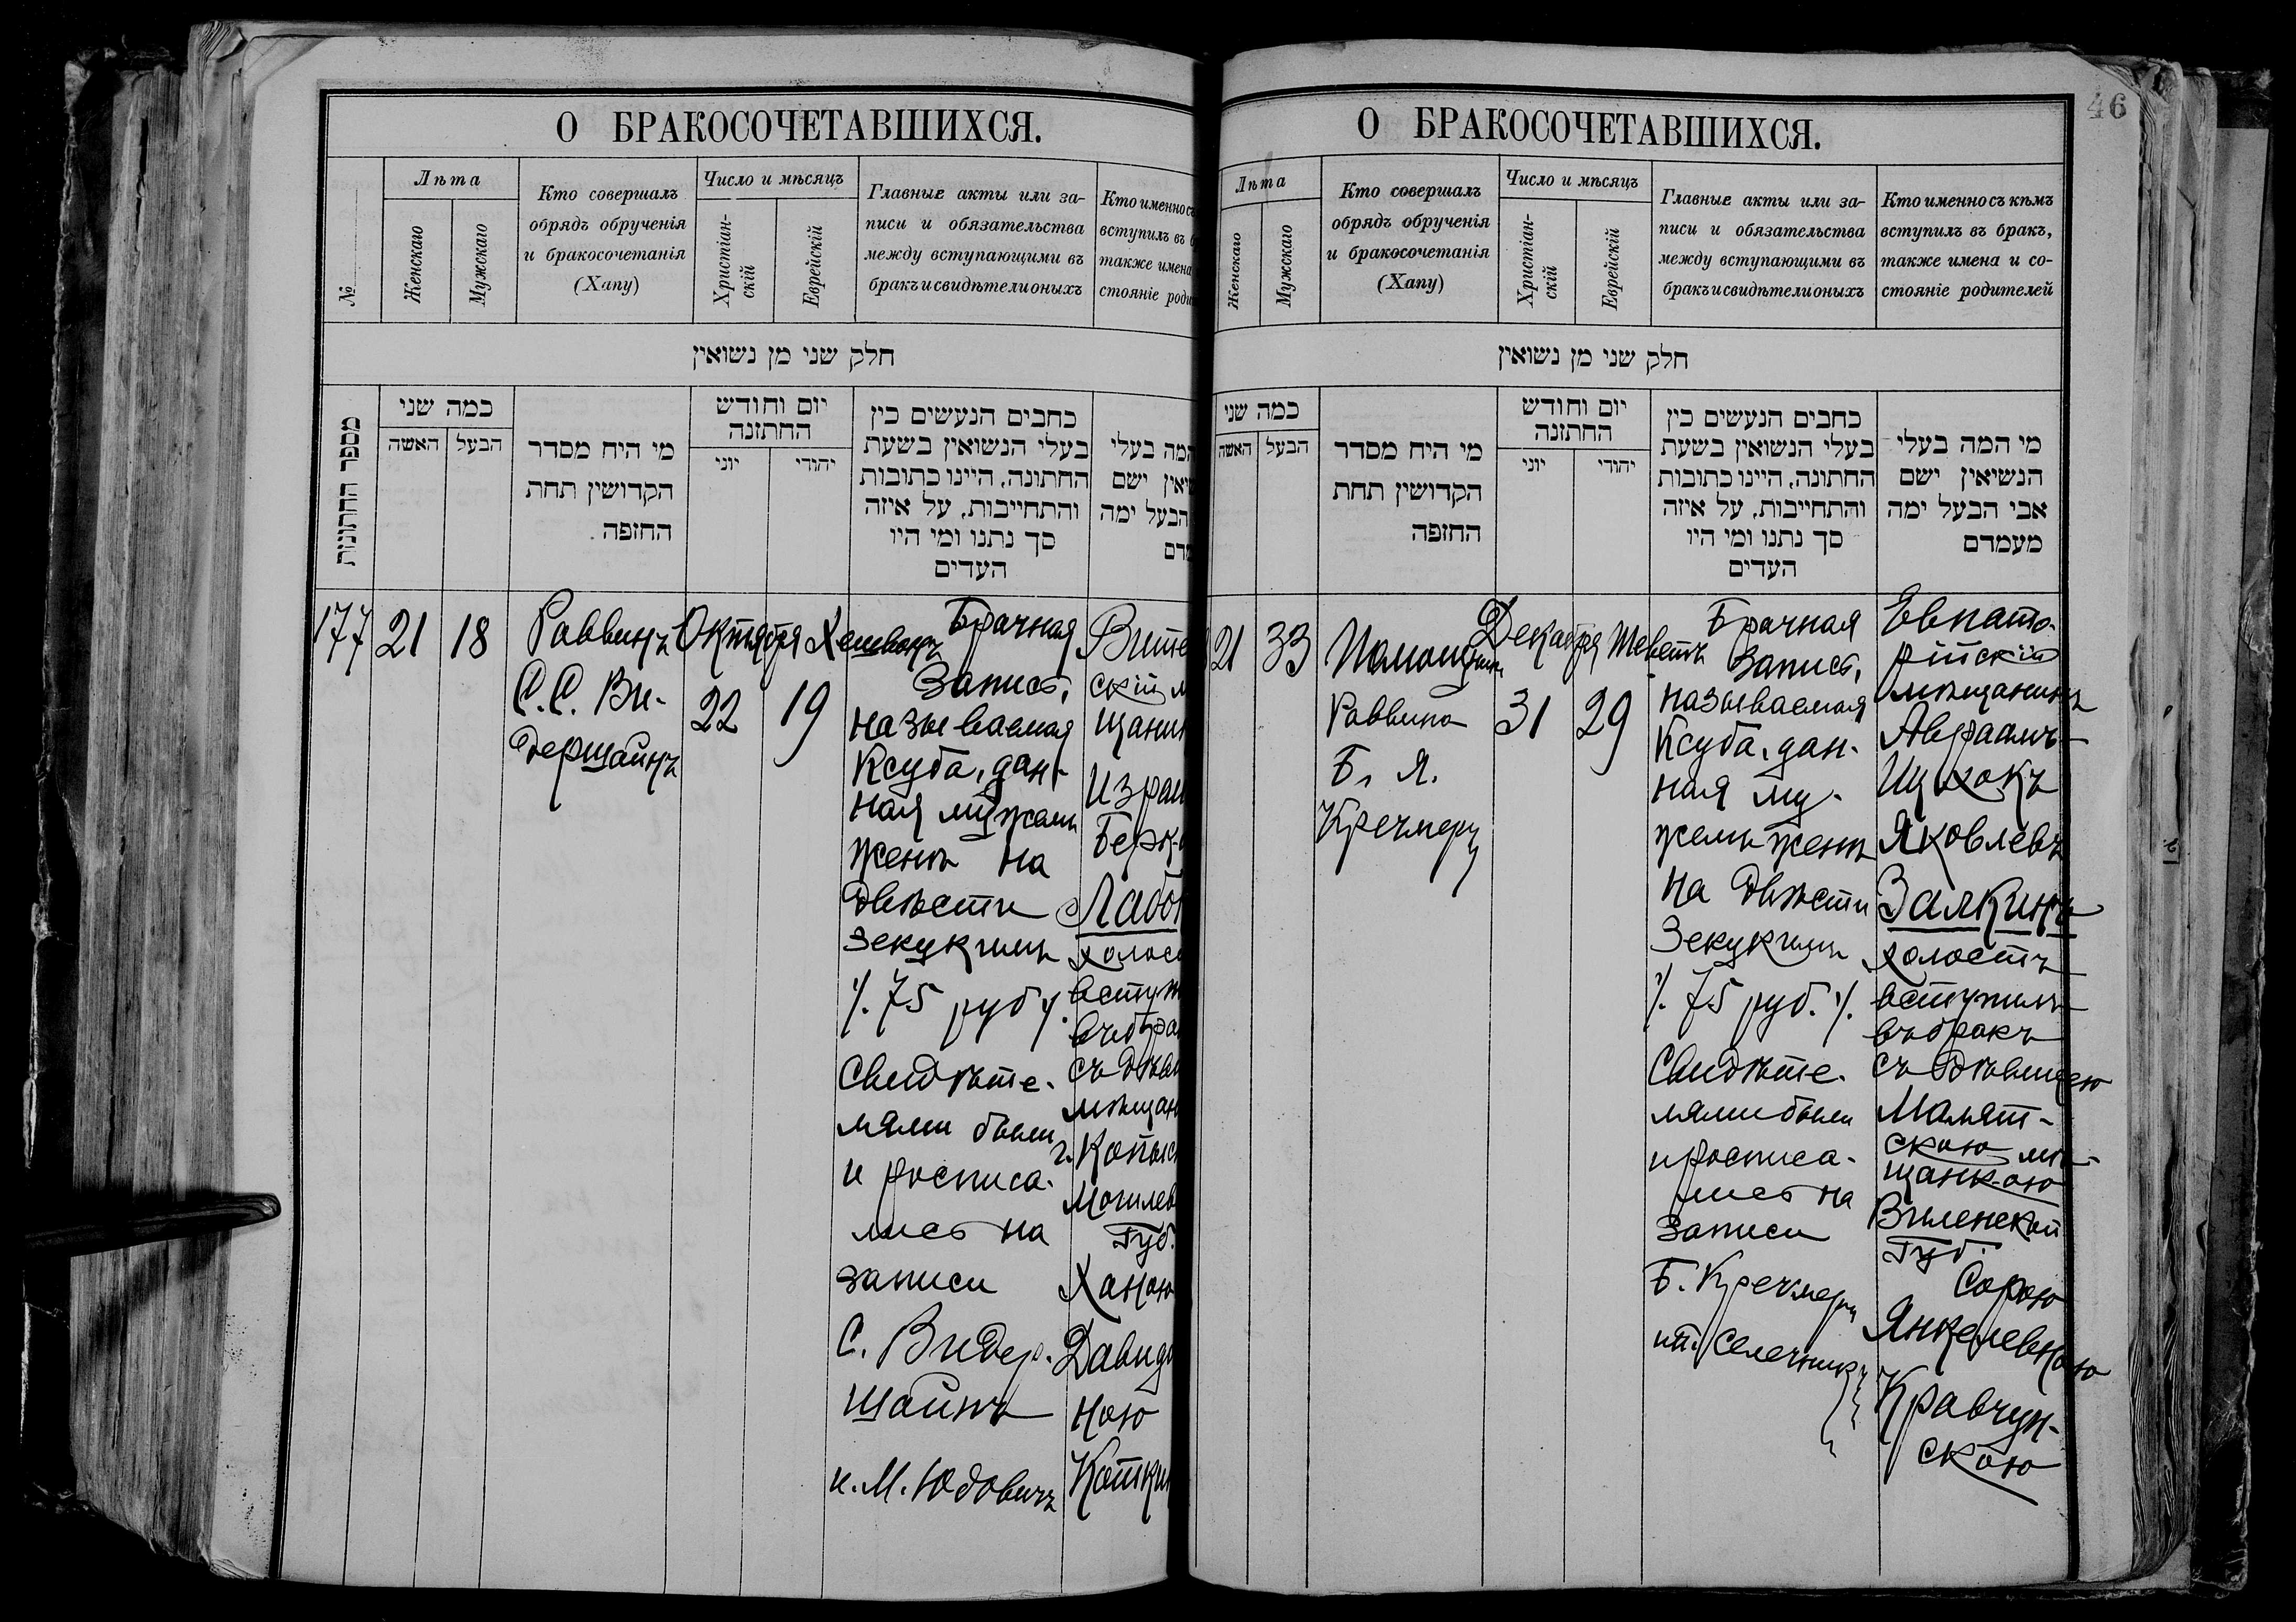 О БРАКОСОЧЕТАВШИХСЯ.
№
Лѣта
Женскаго
Мужскаго
Кто совершалъ
обрядъ обрученія
и бракосочетанія
(Хапу)
Число и мѣсяцъ
Христіан-
скій
Еврейскій
Главные акты или за-
писи и обязательства
между вступающими въ
бракъ и свидѣтели оныхъ
Кто именно съ
вступилъ въ б
также имена
стояніе роди
חלק שני מן נשואין
מספר החתונות
כמה שני
האשה
הבעל
מי היח מסדר
הקדושין תחת
החזפה.
יום וחודש
החתזנה
יוני
יהודי
כחבים הנעשים כין
בעלי הנשואין בשעת
החתונה, היינו כתובות
והתחייבות, על איזה
סך נתנו ומי היו
העדים
המה בעלי
יאין ישם
הבעל ימה
מדם
177
21
18
Раввинъ
С. С. Ви-
дершайнъ
Октября
22
Хешвонъ
19
Брачная
Запись,
называемая
Ксуба, дан-
ная мужемъ
женѣ на
двѣсти
зекукимъ
/. 75 руб /.
Свидѣте-
лями были
и росписа-
лись на
записи
С. Видер-
шайнъ
и М. Юдовичъ
Вите
скій м
щанин
Израи
Берк-
Лабо
холос
вступи
въ бра
съ дѣви
мѣщан
г. Копыс
Могилев
Губ.
Ханою
Давидо
ною
Котки
46
О БРАКОСОЧЕТАВШИХСЯ.
Лѣта
Женскаго
Мужскаго
Кто совершалъ
обрядъ обрученія
и бракосочетанія
(Хапу)
Число и мѣсяцъ
Христіан-
скій
Еврейскій
Главные акты или за-
писи и обязательства
между вступающими въ
бракъ и свидѣтели оныхъ
Кто именно съ кѣмъ
вступилъ въ бракъ,
также имена и со-
стояніе родителей
חלק שני מן נשואין
כמה שני
האשה
הבעל
מי היח מסדר
הקדושין תחת
החזפה
יום וחודש
החתזנה
יוני
יהודי
כחבים הנעשים כין
בעלי הנשואין בשעת
החתונה, היינו כתובות
והתחייבות, על איזה
סך נתנו ומי היו
העדים
מי המה בעלי
הנשיאין ישם
אבי הבעל ימה
מעמדם
21
33
Помощник
Раввина
Б. Я.
Кречмеръ
Декабря
31
Теветъ
29
Брачная
Запись,
называемая
Ксуба, дан-
ная му-
жемъ женѣ
на двѣсти
Зекукимъ
/. 75 руб. /.
Свидѣте-
лями были
и росписа-
лись на
записи
Б. Кречмеръ
Евпато-
рійскій
мѣщанинъ
Авраамъ-
Ицхокъ
Яковлевъ
Залкинъ
холостъ
вступилъ
въ бракъ
съ дѣвицею
скою мѣ-
щанкою
Виленской
Губ.
Сорою
Янкелевною
Кравчун-
скою